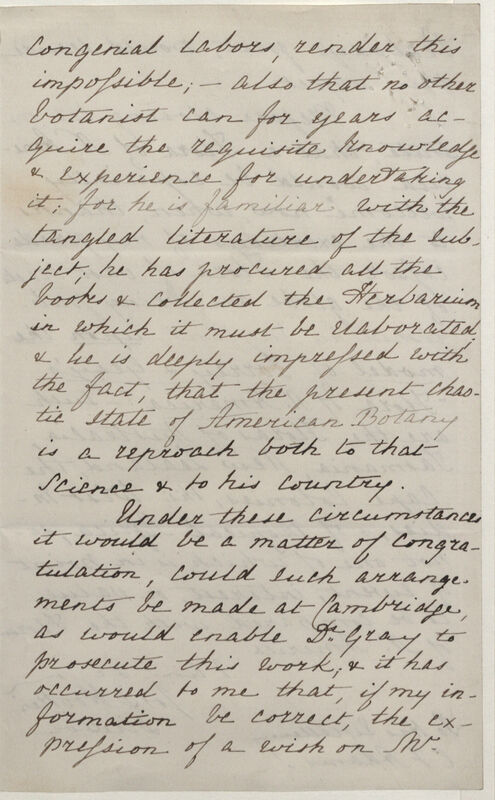 congenial labors, render this
impossible; – also that no other
botanist can for years ac-
quire the requisite knowledge
& experience for undertaking
it; for he is familiar with the
tangled literature of the sub-
ject; he has procured all the
books & collected the Herbarium
in which it must be elaborated,
& he is deeply impressed with
the fact, that the present chao-
tic state of American Botany
is a reproach both to that
Science & to his country.
Under these circumstances
it would be a matter of congra-
tulation, could such arrange-
ments be made at Cambridge,
as would enable Dr. Gray to
prosecute this work; & it has
occurred to me that, if my in-
formation be correct, the ex-
pression of a wish on Mr.